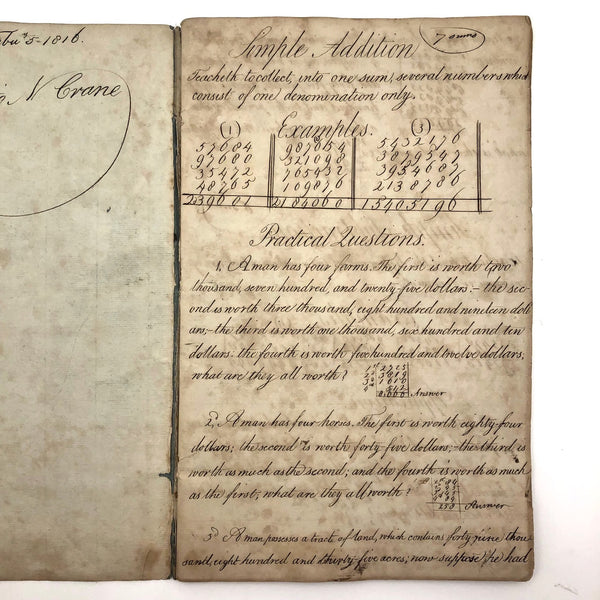 5-1816.
N Crane
Simple Addition
Teacheth to collect, into one sum, several numbers which
consist of one denomination only.
Examples.
(1) (3)
57684 987654 5432176
97680 321098 3879547
35472 765432 3954687
48765 109876 2138786
239601 2184060 15405196
Practical Questions.
1. A man has four farms. The first is worth two
thousand, seven hundred, and twenty-five dollars;- the sec-
ond is worth three thousand, eight hundred and nineteen doll-
ars;- the third is worth one thousand, six hundred and ten
dollars: the fourth is worth five hundred and twelve dollars;
what are they all worth? Answer
2. A man has four horses. The first is worth eighty-four
dollars; the second is worth forty-five dollars;- the third is
worth as much as the second; and the fourth is worth as much
as the first; what are they all worth?
258 Answer
3. A man possesses a tract of land, which contains forty-nine thou
sand, eight hundred and thirty-five acres; now suppose he had